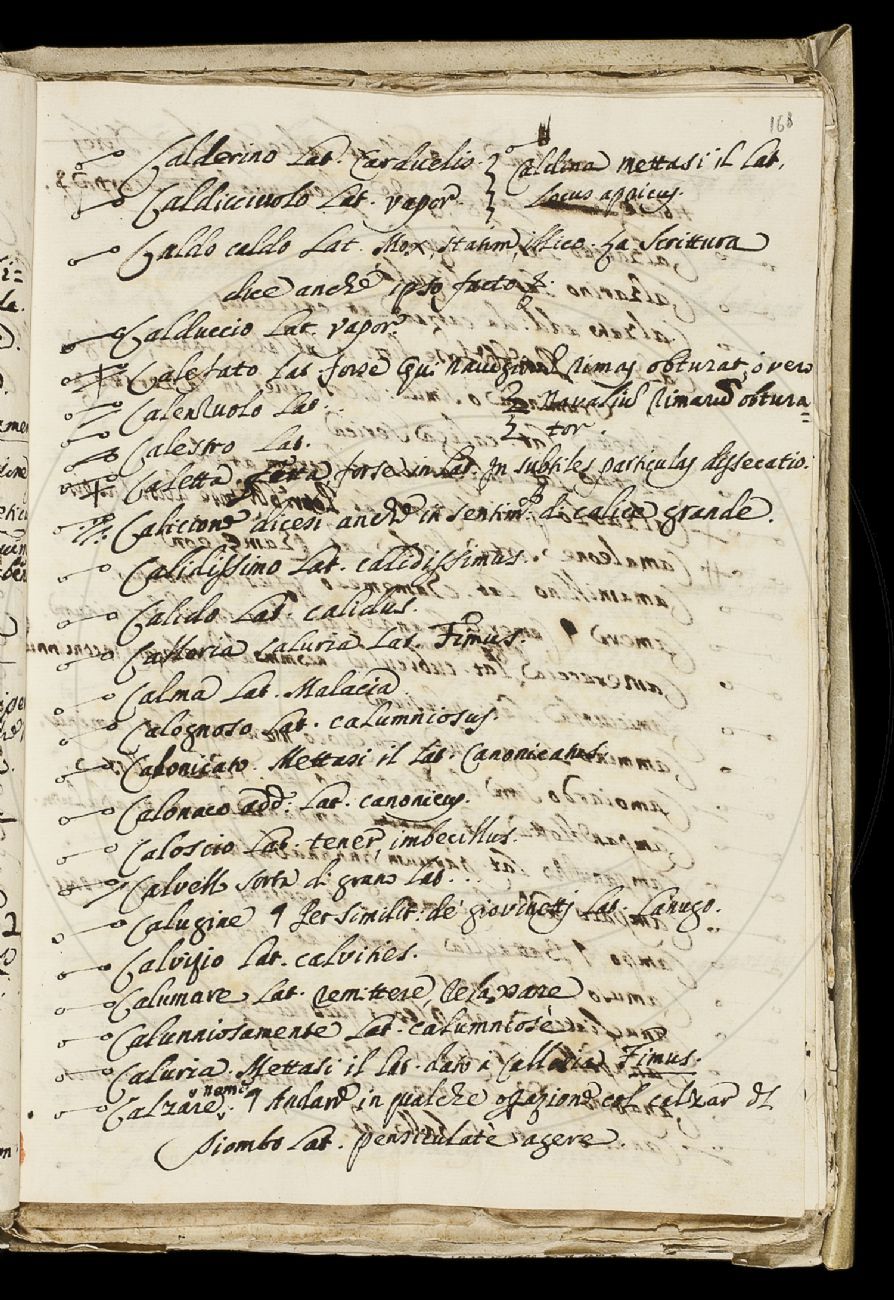 168
Calderino Lat. Carduelis.
Caldina mettasi il Lat.
Locus apricus.
Caldicciuolo Lat. vapor.
Caldo caldo Lat. Mox, statim, illico. La Scrittura
dice anche ipso facto
Calduccio Lat. vapor.
Calefato Lat. forse Qui navigiorum rimas obturat, o vero
Navalium rimarum obtura=
tor.
Calenzuolo Lat. . .
Calestro Lat.
Caletta forse in Lat. In subtiles particulas dissecatio.
Calicione dicesi anche in sentim.to di calice grande.
Calidissimo Lat. calidissimus.
Calido Lat. calidus.
Calloria caluria Lat. Fimus.
Calma Lat. Malacia
Calognoso Lat. calumniosus.
Calonicato. Mettasi il Lat. Canonicatus.
Calonaco add. Lat. canonicus.
Caloscio Lat. tener, imbecillus.
Calvello sorta di grano Lat. . .
Calugine ¶ Per similit. de' giovinetti Lat. Lanugo.
Calvizio Lat. calvities.
Calumare Lat. remittere, relaxare
Calunniosamente Lat. calumniosè
Caluria. Mettasi il lat. dato a Calloria Fimus.
Calzare nome ¶ Andare in qualche operazione col calzar di
Piombo Lat. pensiculatè agere.